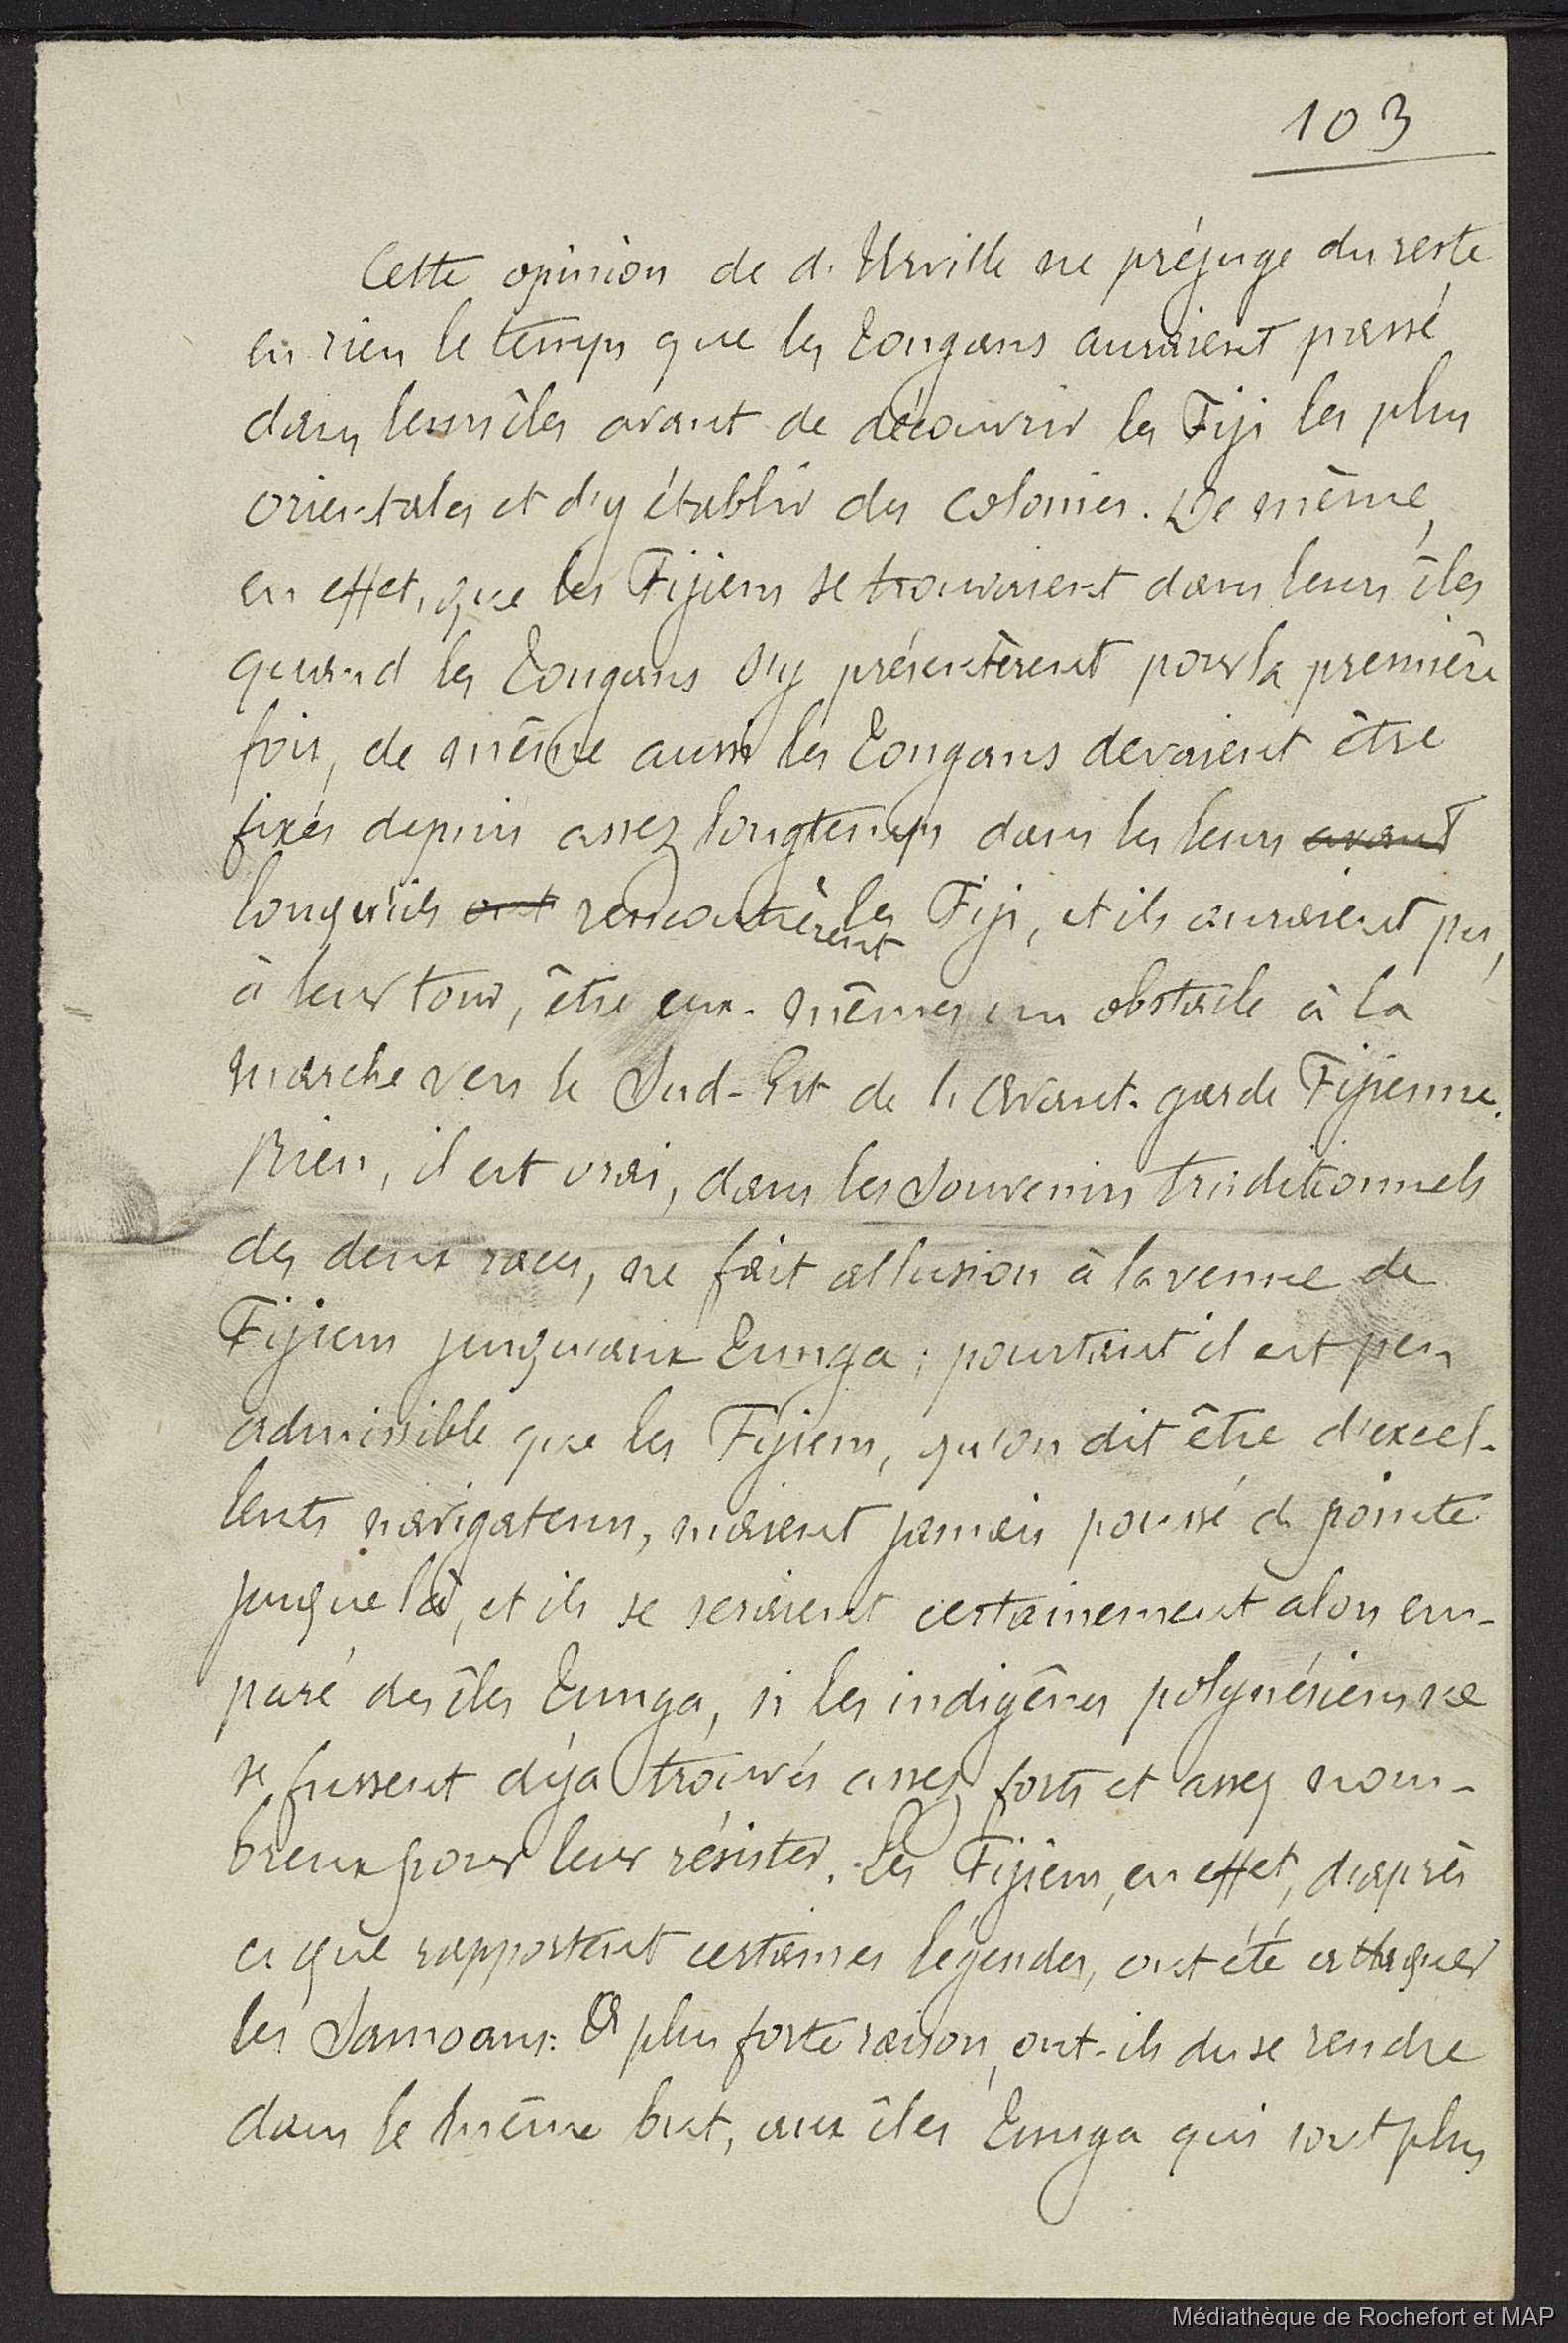 103
Cette opinion de d'Urville ne préjuge du reste
en rien le temps que les Tongans auraient passé
dans leurs îles avant de découvrir les Fiji les plus
orientales et d'y établir des colonies. De même,
en effet, que les Fijiens se trouvaient dans leurs îles
quand les Tongans s'y présentèrent pour la première
fois, de même aussi les Tongans devaient être
fixés depuis assez longtemps dans les leurs avant
lorsqu'ils ont rencontrèrent les Fiji, et ils auraient pu,
à leur tour, être eux-mêmes un obstacle à la
marche vers le Sud-Est de l'avant-garde Fijienne.
Rien, il est vrai, dans les souvenirs traditionnels
des deux races, ne fait allusion à la venue de
Fijiens jusqu'aux Tunga; pourtant il est peu
admissible que les Fijiens, qu'on dit être d'excel-
lents navigateurs, n'aient jamais poussé de pointe
jusque là, et ils se seraient certainement alors em-
paré des îles Tunga, si les indigènes polynésiens ne
se fussent déja trouvés assez forts et assez nom-
breux pour leur résister. Les Fijiens, en effet, d'après
ce que rapportent certaines légendes, ont été attaquer
les Samoans: A plus forte raison, ont-ils du se rendre
dans le même but, aux îles Tunga qui sont plus
Médiathèque de Rochefort et MAP